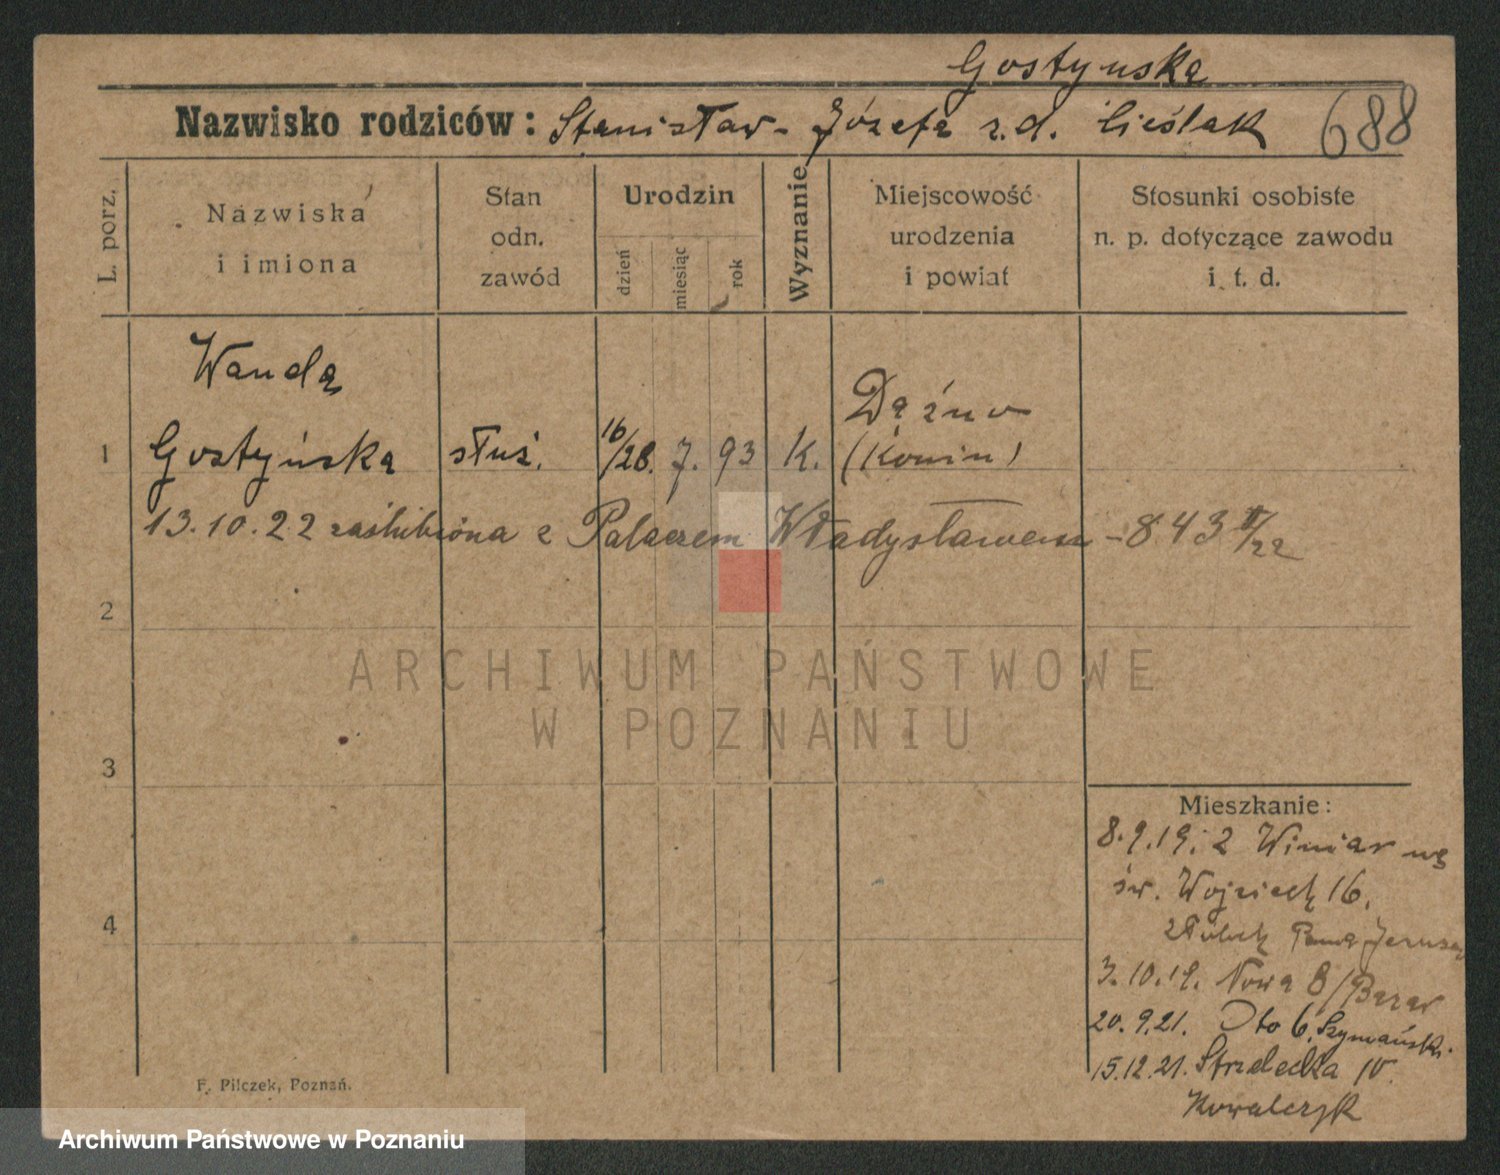 Gostynska
Nazwisko rodziców: Stanisław - Józefa z.d. Cieślak 688
L. porz.
Nazwiska
i imiona
Stan
odn.
zawód
Urodzin
dzień
miesiąc
rok
Wyznanie
Miejscowość
urodzenia
i powiat
Stosunki osobiste
n. p. dotyczące zawodu
i. t. d.
Wanda
1 Gostyńska służ. 16/28. 7. 93 K. Dążno
(Konin)
13.10.22 zaślubiona z Palaczem Władysławem - 843 II/22
2
ARCHIWUM PAŃSTWOWE
W POZNANIU
3
Mieszkanie:
8.9.19. z Winiar
św. Wojciech 16.
3.10.19. Nowa 8 / Bazar
4
20.9.21. 6. Szymański.
15.12.21. Strzelecka
Kowalczyk
F. Pilczek, Poznań.
Archiwum Państwowe w Poznaniu